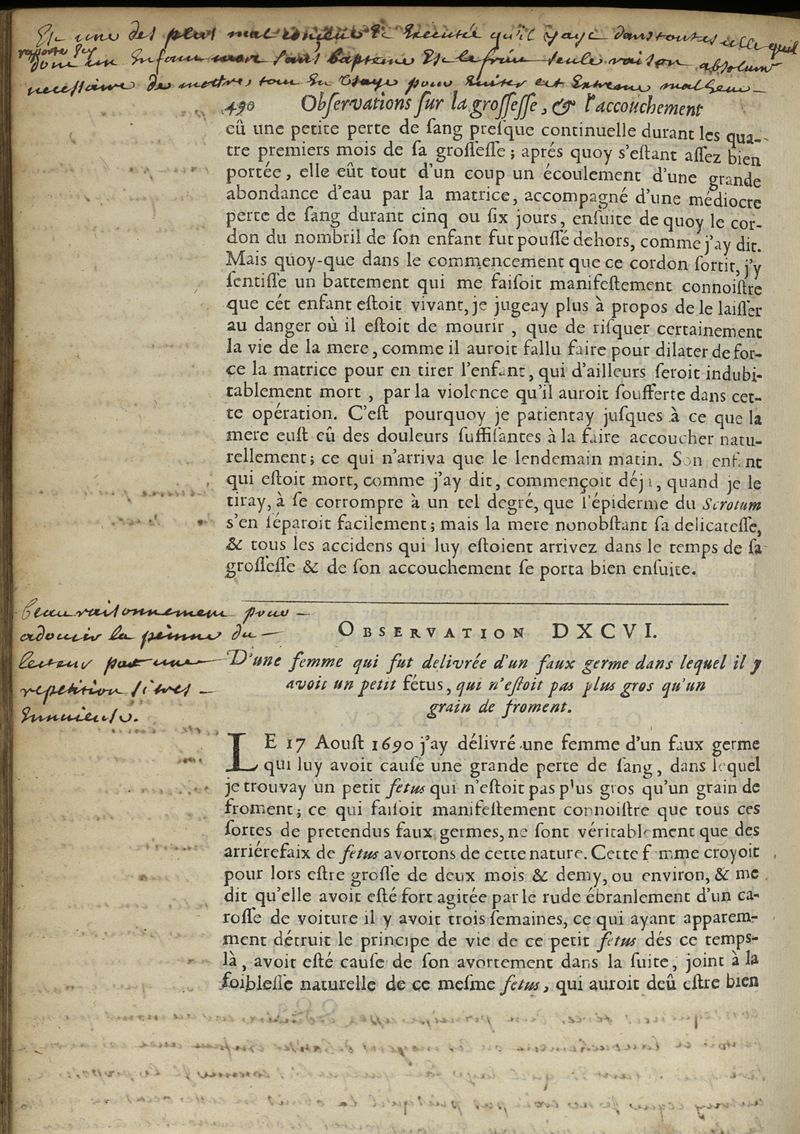 necessaire de mettre tout en usage pour eviter cet extreme malheur
490 Obſervations ſur la groſſeſſe, & l'accouchement
eû une petite perte de ſang preſque continuelle durant les qua-
tre premiers mois de ſa groſſeſſe ; aprés quoy s'eſtant aſſez bien
portée, elle eût tout d'un coup un écoulement d'une grande
abondance d'eau par la matrice, accompagné d'une médiocre
perte de ſang durant cinq ou ſix jours, enſuite de quoy le cor-
don du nombril de ſon enfant fut pouſſé dehors, comme j'ay dit.
Mais quoy-que dans le commencement que ce cordon ſortit, j'y
ſentiſſe un battement qui me faiſoit manifeſtement connoiſtre
que cét enfant eſtoit vivant, je jugeay plus à propos de le laiſſer
au danger où il eſtoit de mourir , que de riſquer certainement
la vie de la mere, comme il auroit fallu faire pour dilater de for-
ce la matrice pour en tirer l'enfant, qui d'ailleurs ſeroit indubi-
tablement mort , par la violence qu'il auroit ſoufferte dans cet-
te opération. C'eſt pourquoy je patientay juſques à ce que la
mere euſt eû des douleurs ſuffiſantes à la faire accoucher natu-
rellement ; ce qui n'arriva que le lendemain matin. Son enfant
qui eſtoit mort, comme j'ay dit, commençoit déja, quand je le
tiray, à ſe corrompre à un tel degré, que l'épiderme du Scrotum
s'en ſéparoit facilement ; mais la mere nonobſtant ſa delicateſſe,
& tous les accidens qui luy eſtoient arrivez dans le temps de ſa
groſſeſſe & de ſon accouchement ſe porta bien enſuite.
Beau raisonnement pour
adoucir la peinne du
lecteur par une
repetition si tres
ennuieuse.
OBSERVATION DXCVI.
D'une femme qui fut delivrée d'un faux germe dans lequel il y
avoit un petit fétus, qui n'eſtoit pas plus gros qu'un
grain de froment.
LE 17 Aouſt 1690 j'ay délivré une femme d'un faux germe
qui luy avoit cauſé une grande perte de ſang, dans lequel
je trouvay un petit fetus qui n'eſtoit pas plus gros qu'un grain de
froment ; ce qui faiſoit manifeſtement connoiſtre que tous ces
ſortes de pretendus faux germes, ne ſont véritablement que des
arriérefaix de fetus avortons de cette nature. Cette femme croyoit
pour lors eſtre groſſe de deux mois & demy, ou environ, & me
dit qu'elle avoit eſté fort agitée par le rude ébranlement d'un ca-
roſſe de voiture il y avoit trois ſemaines, ce qui ayant apparem-
ment détruit le principe de vie de ce petit fetus dés ce temps-
là, avoit eſté cauſe de ſon avortement dans la ſuite, joint à la
foibleſſe naturelle de ce meſme fetus, qui auroit deû eſtre bien